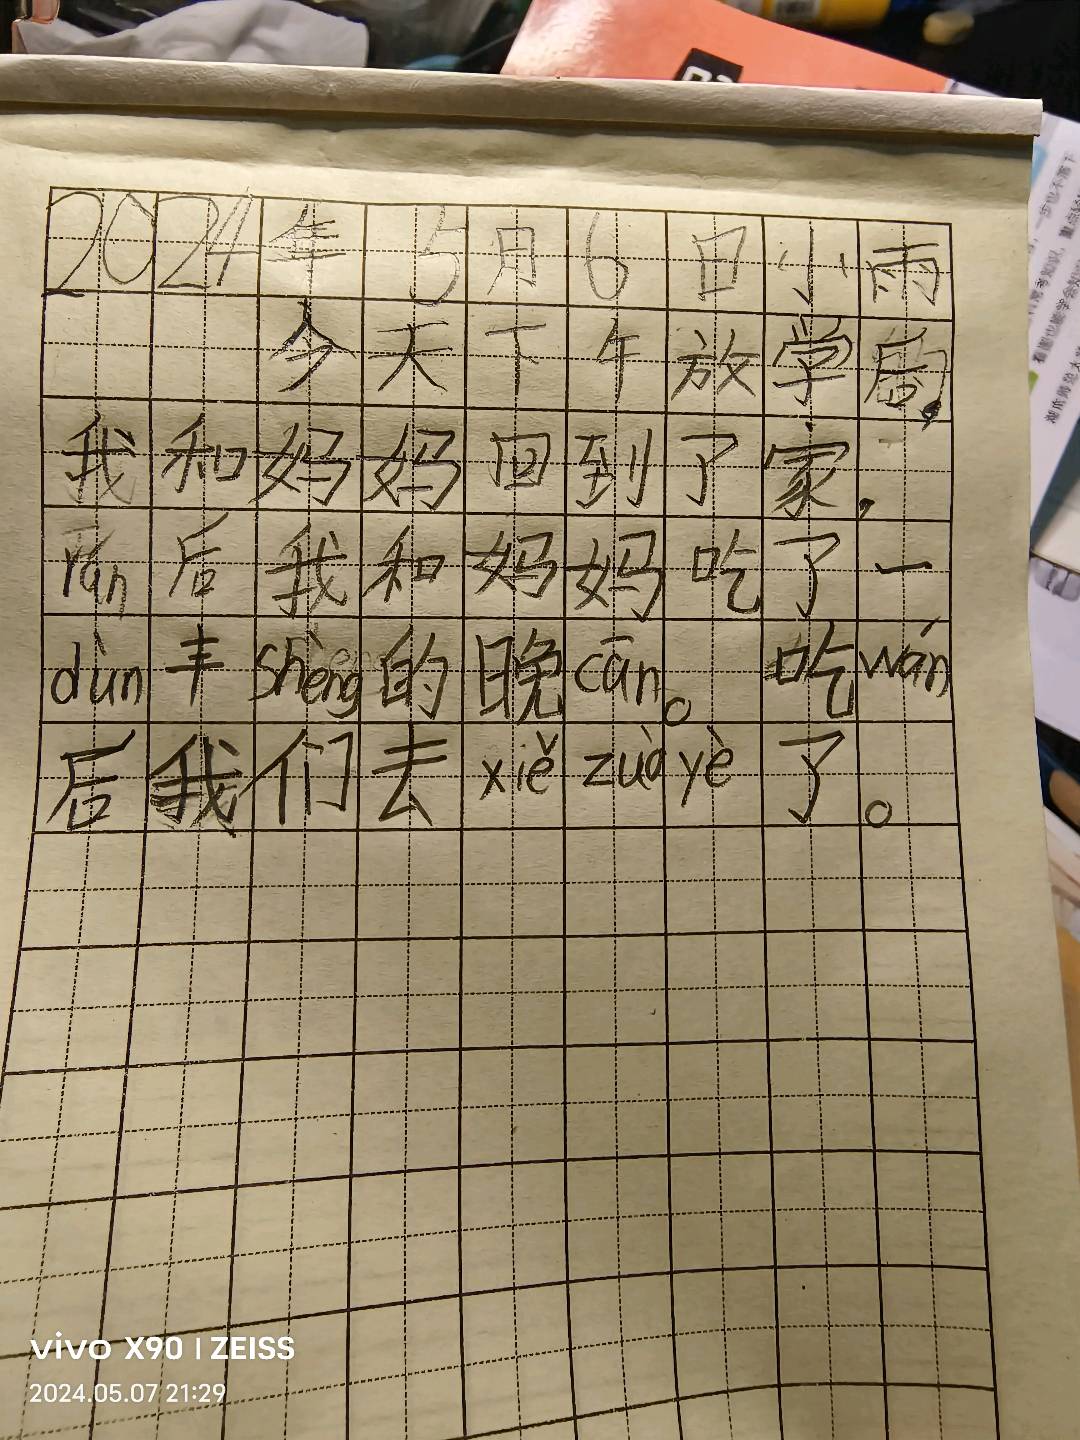 2024年5月6日小雨
今天下午放学后,
我和妈妈回到了家,
rán后我和妈妈吃了一
dùn丰shèng的晚cān。吃wán
后我们去xiě zuò yè了。
vivo X90 | ZEISS
2024.05.07 21:29